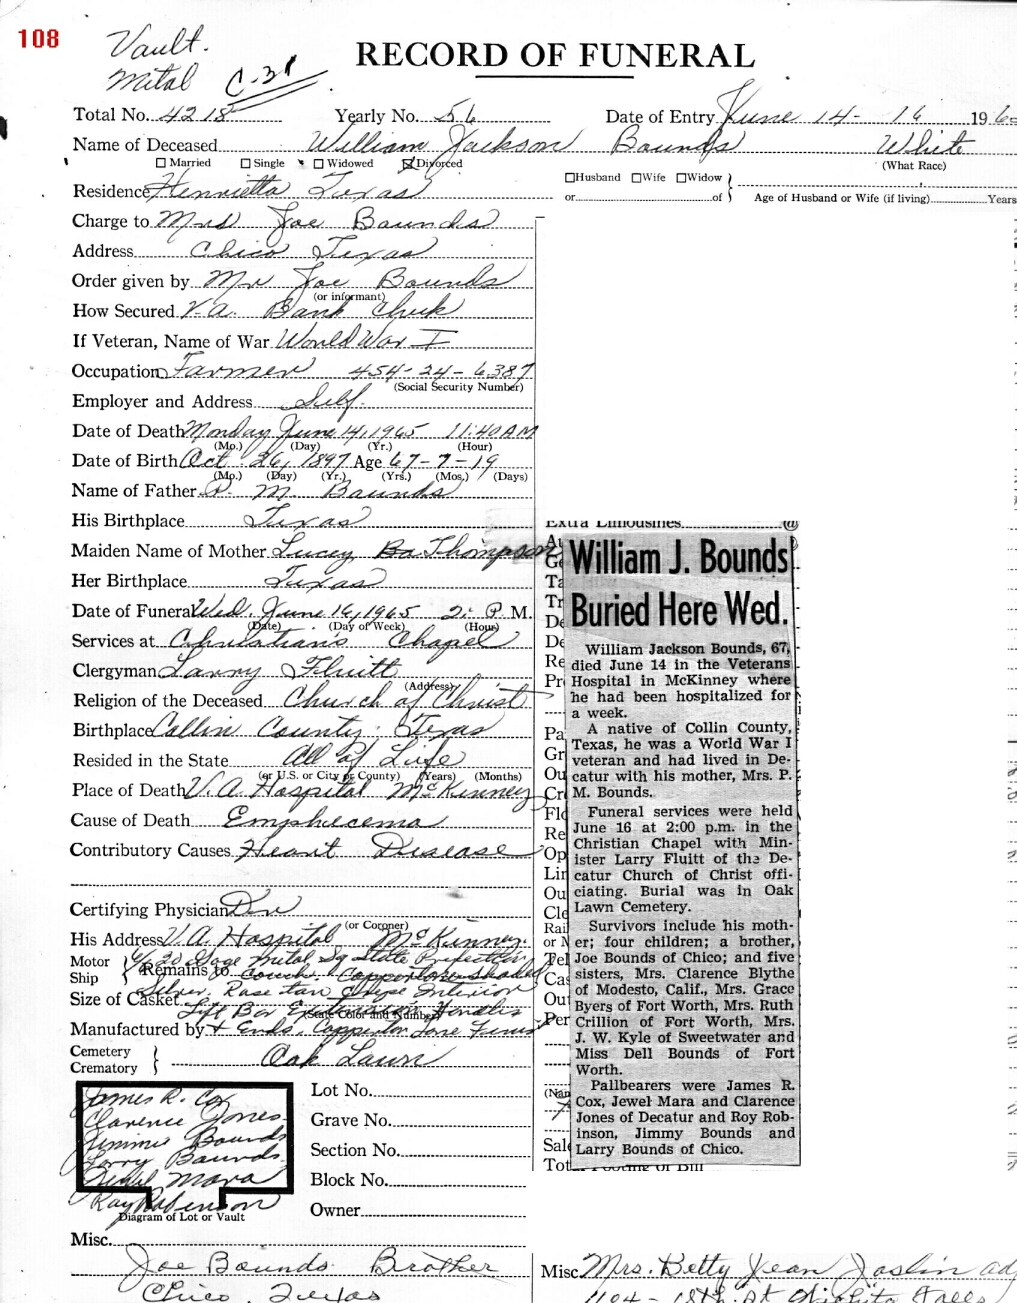 108
Vault.
Mital C-31
RECORD OF FUNERAL
Total No. 4218 Yearly No. 56 Date of Entry June 14-16 196
Name of Deceased William Jackson Bounds White
Married Single Widowed Divorced (What Race)
Residence Henrietta Texas Husband Wife Widow
or of Age of Husband or Wife (if living) Years
Charge to Mrs Joe Bounds
Address Chico Texas
Order given by Mr Joe Bounds
(or informant)
How Secured V.A. Bank Chuk
If Veteran, Name of War World War I
Occupation Farmer 454-24-6387
(Social Security Number)
Employer and Address Self.
Date of Death Monday June 14, 1965 11:40 AM
(Mo.) (Day) (Yr.) (Hour)
Date of Birth Oct 26, 1897 Age 67-7-19
(Mo.) (Day) (Yr.) (Yrs.) (Mos.) (Days)
Name of Father P. M. Bounds
His Birthplace Texas
Maiden Name of Mother Lucey Thompson
Her Birthplace Texas
Date of Funeral Wed. June 16, 1965 2: P.M.
(Date) (Day of Week) (Hour)
Services at Christian's Chapel
Clergyman Larry Fluitt
(Address)
Religion of the Deceased Church of Christ
Birthplace Collin County, Texas
Resided in the State All of Life
(or U.S. or City or County) (Years) (Months)
Place of Death V.A. Hospital McKinney
Cause of Death Emphecema
Contributory Causes Heart Disease
Certifying Physician
(or Coroner)
His Address V.A. Hospital McKinney.
Motor
Ship
Remains to
6/ 20 Gage Metal Sq State
Couch Coppertone Shaded
Silver, Rose tan Crepe Interior
Size of Casket
Lift Bar Extension Handles
(State Color and Number)
Manufactured by + Ends, Coppertone Tone Finish
Cemetery
Crematory
Oak Lawn
James R. Cox
Clarence Jones
Jimmie Bounds
Larry Bounds
Jewel Mara
Ray Robinson
Diagram of Lot or Vault
Lot No.
Grave No.
Section No.
Block No.
Owner
Misc.
Joe Bounds Brother
Chico, Texas
Extra Limousines @
William J. Bounds
Buried Here Wed.
William Jackson Bounds, 67,
died June 14 in the Veterans
Hospital in McKinney where
he had been hospitalized for
a week.
A native of Collin County,
Texas, he was a World War I
veteran and had lived in De-
catur with his mother, Mrs. P.
M. Bounds.
Funeral services were held
June 16 at 2:00 p.m. in the
Christian Chapel with Min-
ister Larry Fluitt of the De-
catur Church of Christ offi-
ciating. Burial was in Oak
Lawn Cemetery.
Survivors include his moth-
er; four children; a brother,
Joe Bounds of Chico; and five
sisters, Mrs. Clarence Blythe
of Modesto, Calif., Mrs. Grace
Byers of Fort Worth, Mrs. Ruth
Crillion of Fort Worth, Mrs.
J. W. Kyle of Sweetwater and
Miss Dell Bounds of Fort
Worth.
Pallbearers were James R.
Cox, Jewel Mara and Clarence
Jones of Decatur and Roy Rob-
inson, Jimmy Bounds and
Larry Bounds of Chico.
Total Footing of Bill
Misc Mrs. Betty Jean Joslin
1104 - 18th St Wichita Falls